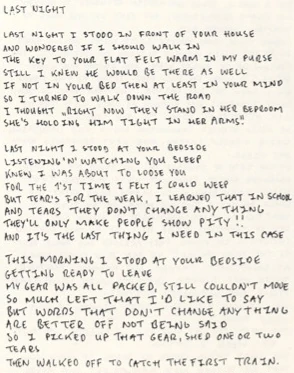 LAST NIGHT
LAST NIGHT I STOOD IN FRONT OF YOUR HOUSE
AND WONDERED IF I SHOULD WALK IN
THE KEY TO YOUR FLAT FELT WARM IN MY PURSE
STILL I KNEW HE WOULD BE THERE AS WELL
IF NOT IN YOUR BED THEN AT LEAST IN YOUR MIND
SO I TURNED TO WALK DOWN THE ROAD
I THOUGHT „RIGHT NOW THEY STAND IN HER BEDROOM
SHE'S HOLDING HIM TIGHT IN HER ARMS"
LAST NIGHT I STOOD AT YOUR BEDSIDE
LISTENING'N'WATCHING YOU SLEEP
KNEW I WAS ABOUT TO LOOSE YOU
FOR THE 1'ST TIME I FELT I COULD WEEP
BUT TEAR'S FOR THE WEAK, I LEARNED THAT IN SCHOOL
AND TEARS THEY DON'T CHANGE ANY THING
THEY'LL ONLY MAKE PEOPLE SHOW PITY!!
AND IT'S THE LAST THING I NEED IN THIS CASE
THIS MORNING I STOOD AT YOUR BEDSIDE
GETTING READY TO LEAVE
MY GEAR WAS ALL PACKED, STILL COULDN'T MOVE
SO MUCH LEFT THAT I'D LIKE TO SAY
BUT WORDS THAT DON'T CHANGE ANYTHING
ARE BETTER OFF NOT BEING SAID
SO I PICKED UP THAT GEAR, SHED ONE OR TWO
TEARS
THEN WALKED OFF TO CATCH THE FIRST TRAIN.